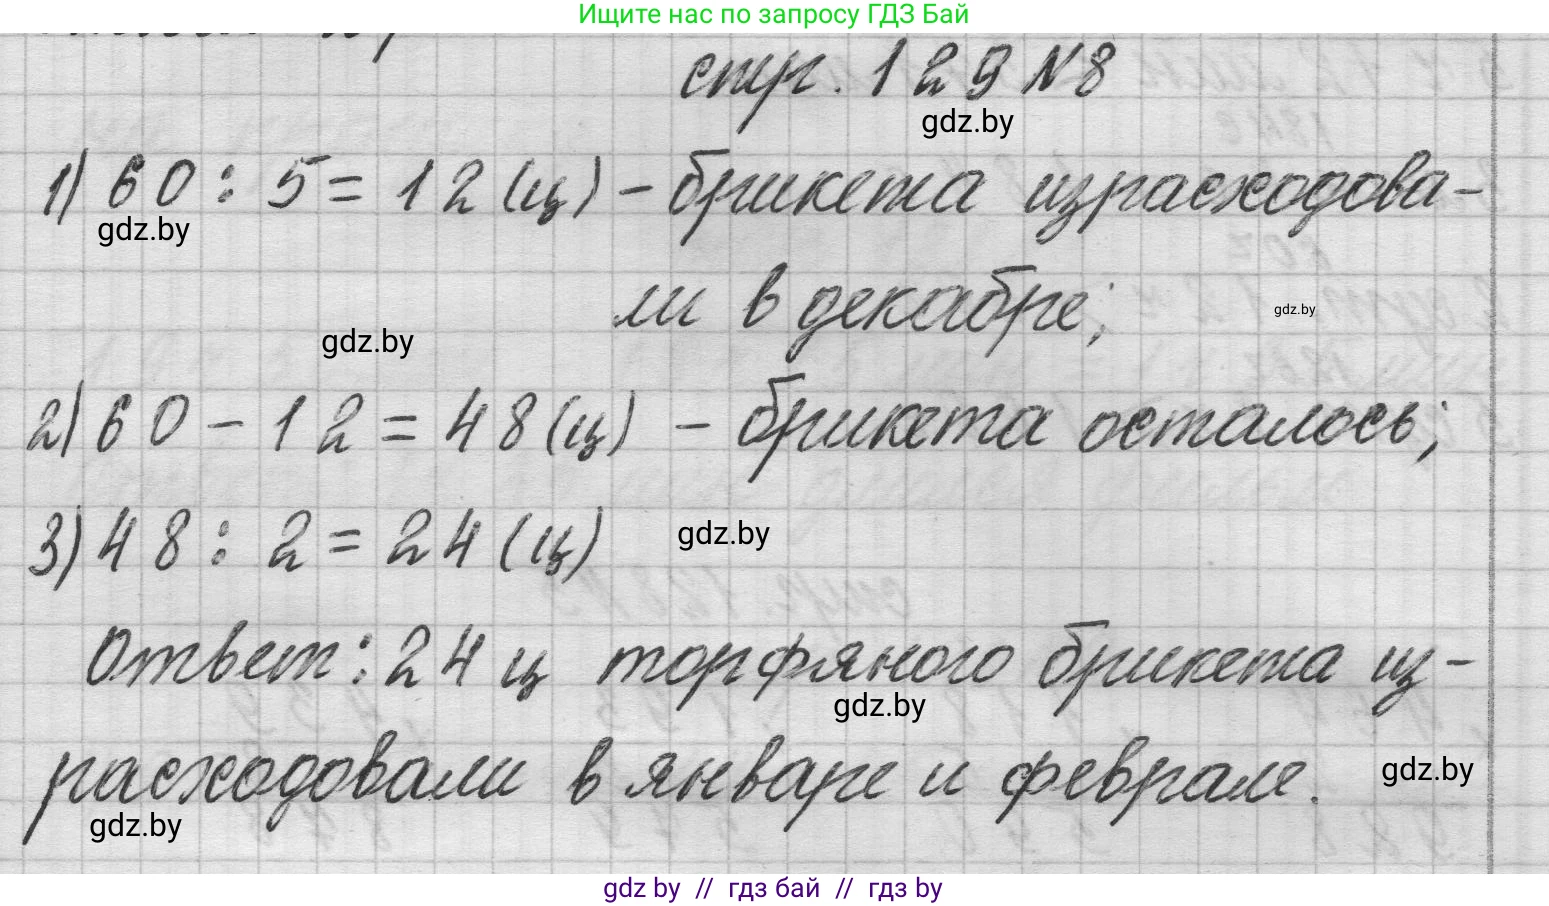 Ищите нас по запросу ГДЗ Бай
стр. 129 №8
gdz.by
1) 60 : 5 = 12 (ц) - брикета израсходова-
gdz.by
ли в декабре;
gdz.by
gdz.by
2) 60 - 12 = 48 (ц) - брикета осталось;
3) 48 : 2 = 24 (ц)
gdz.by
Ответ: 24 ц торфяного брикета из-
gdz.by
расходовали в январе и феврале.
gdz.by
gdz.by
gdz by // гдз бай // гдз by